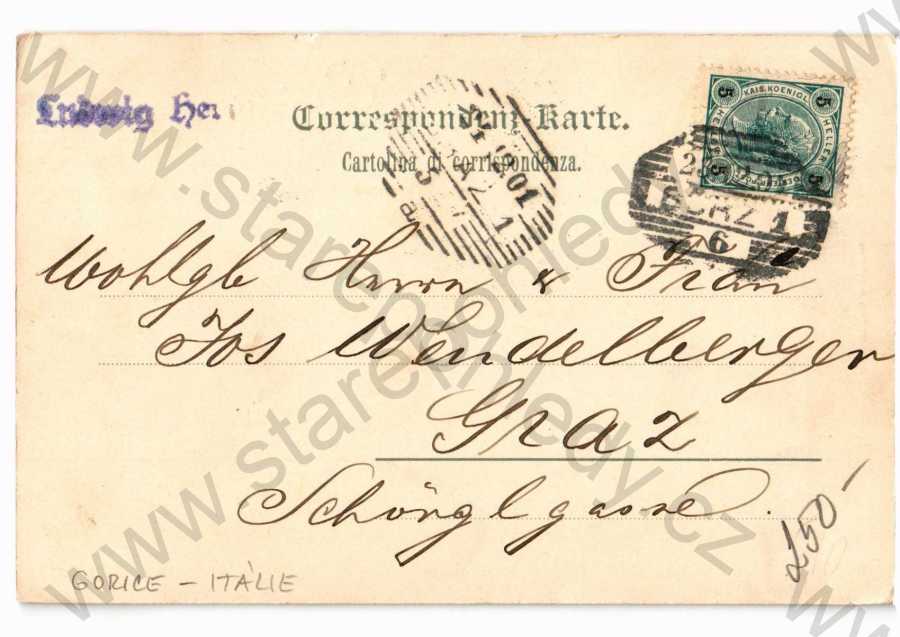 Ludwig
Correspondenz-Karte.
Cartolina di corrispondenza.
KAIS. KOENIGL.
5 5
HELLER HELLER
5 5
1
6
Wohlgb Herrn & Frau
Jos Wendelberger
Graz
Schörglgasse.
250
GORICE - ITÁLIE
www.stare-pohledy.cz